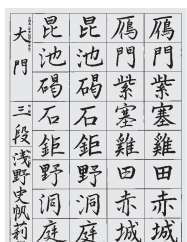 鴈門紫塞雞田赤城
鴈門紫塞雞田赤城
昆池碣石鉅野洞庭
昆池碣石鉅野洞庭
大門 三段 浅野史帆莉